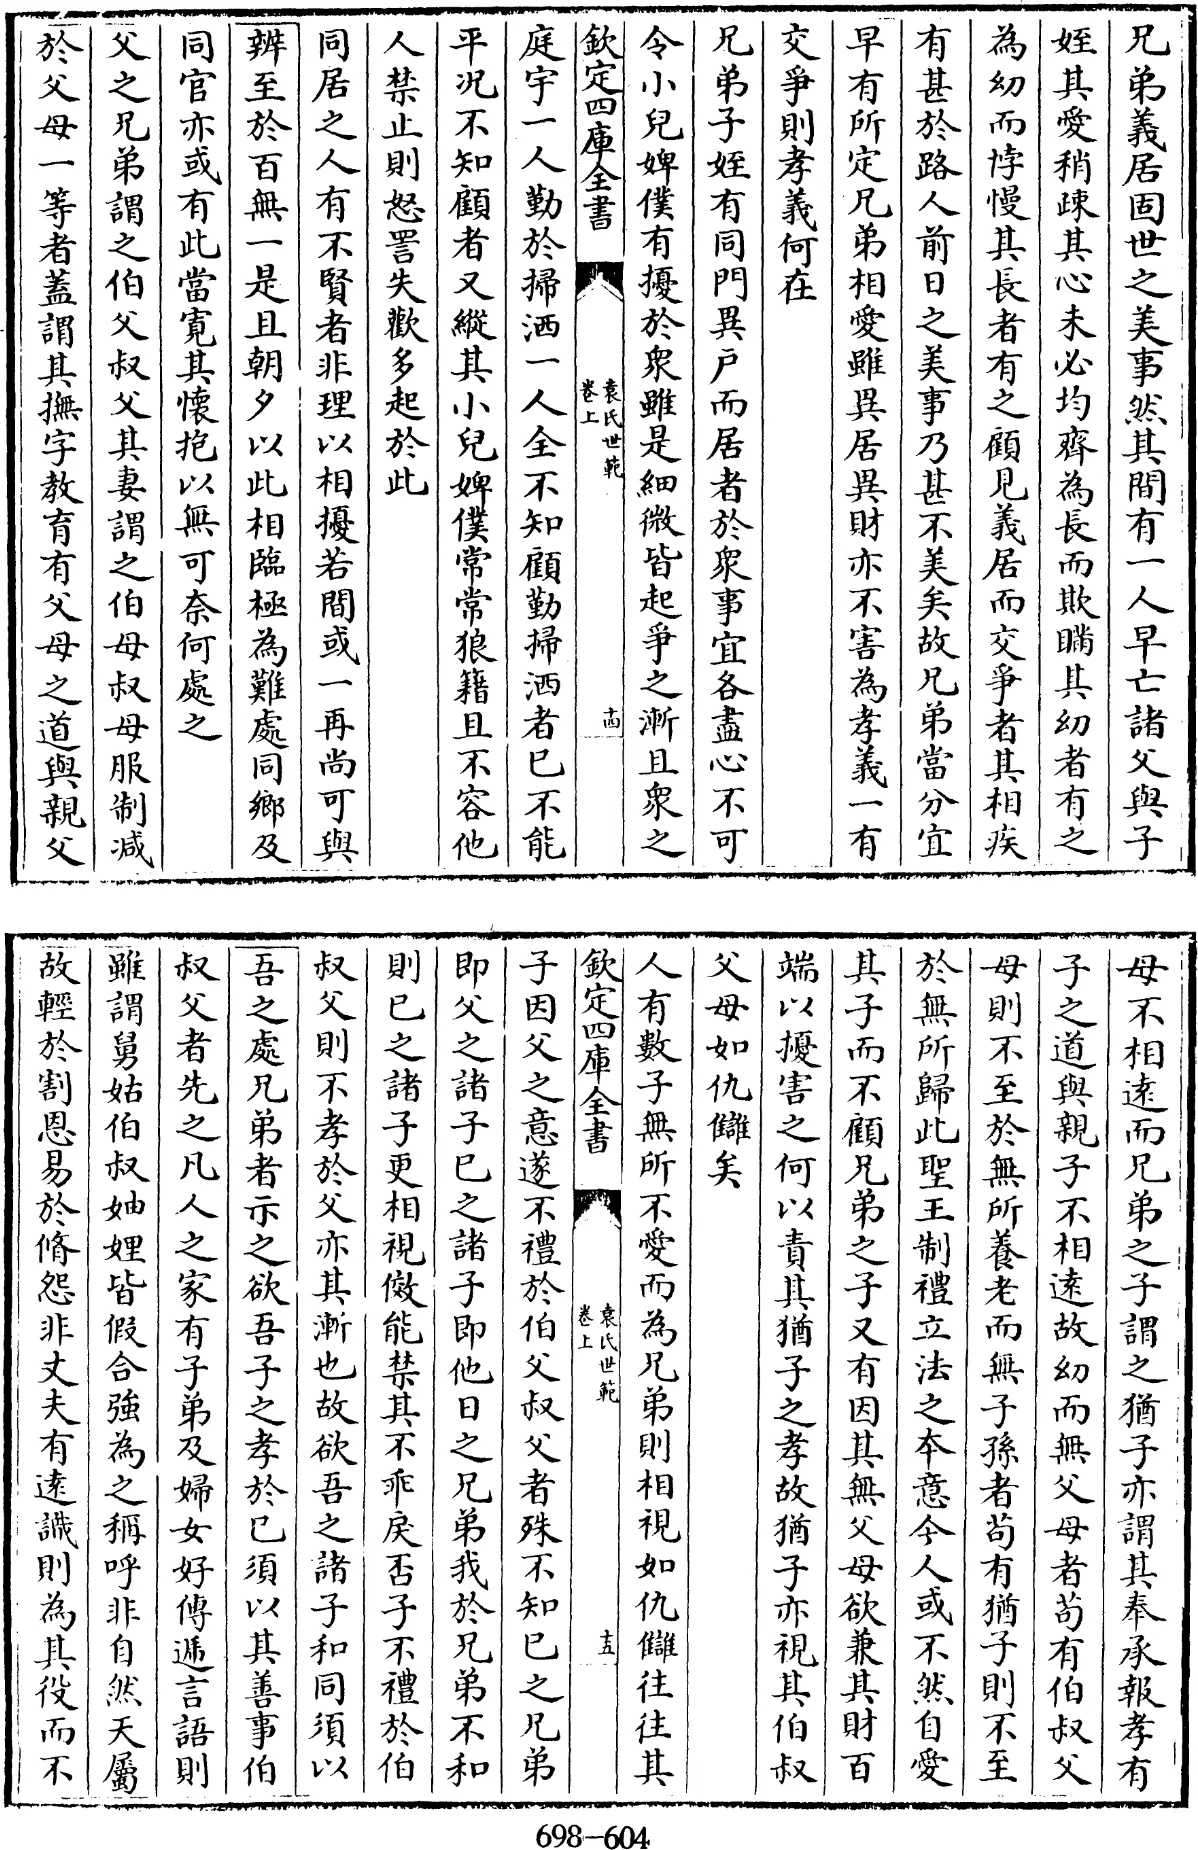 兄弟義居固世之美事然其間有一人早亡諸父與子
姪其愛稍疎其心未必均齊為長而欺瞞其幼者有之
為幼而悖慢其長者有之顧見義居而交爭者其相疾
有甚於路人前日之美事乃甚不美矣故兄弟當分宜
早有所定兄弟相愛雖異居異財亦不害為孝義一有
交爭則孝義何在
兄弟子姪有同門異户而居者於衆事宜各盡心不可
令小兒婢僕有擾於衆雖是細微皆起爭之漸且衆之
欽定四庫全書
袁氏世範
卷上
十四
庭宇一人勤於掃洒一人全不知顧勤掃洒者已不能
平况不知顧者又縱其小兒婢僕常常狼籍且不容他
人禁止則怒詈失歡多起於此
同居之人有不賢者非理以相擾若間或一再尚可與
辨至於百無一是且朝夕以此相臨極為難處同鄉及
同官亦或有此當寛其懷抱以無可奈何處之
父之兄弟謂之伯父叔父其妻謂之伯母叔母服制减
於父母一等者蓋謂其撫字教育有父母之道與親父
母不相逺而兄弟之子謂之猶子亦謂其奉承報孝有
子之道與親子不相逺故幼而無父母者苟有伯叔父
母則不至於無所養老而無子孫者苟有猶子則不至
於無所歸此聖王制禮立法之本意今人或不然自愛
其子而不顧兄弟之子又有因其無父母欲兼其財百
端以擾害之何以責其猶子之孝故猶子亦視其伯叔
父母如仇讎矣
人有數子無所不愛而為兄弟則相視如仇讎往往其
欽定四庫全書
袁氏世範
卷上
十五
子因父之意遂不禮於伯父叔父者殊不知已之兄弟
即父之諸子已之諸子即他日之兄弟我於兄弟不和
則已之諸子更相視傚能禁其不乖戾否子不禮於伯
叔父則不孝於父亦其漸也故欲吾之諸子和同須以
吾之處兄弟者示之欲吾子之孝於已須以其善事伯
叔父者先之凡人之家有子弟及婦女好傳遞言語則
雖謂舅姑伯叔妯娌皆假合強為之稱呼非自然天屬
故輕於割恩易於脩怨非丈夫有逺識則為其役而不
698-604